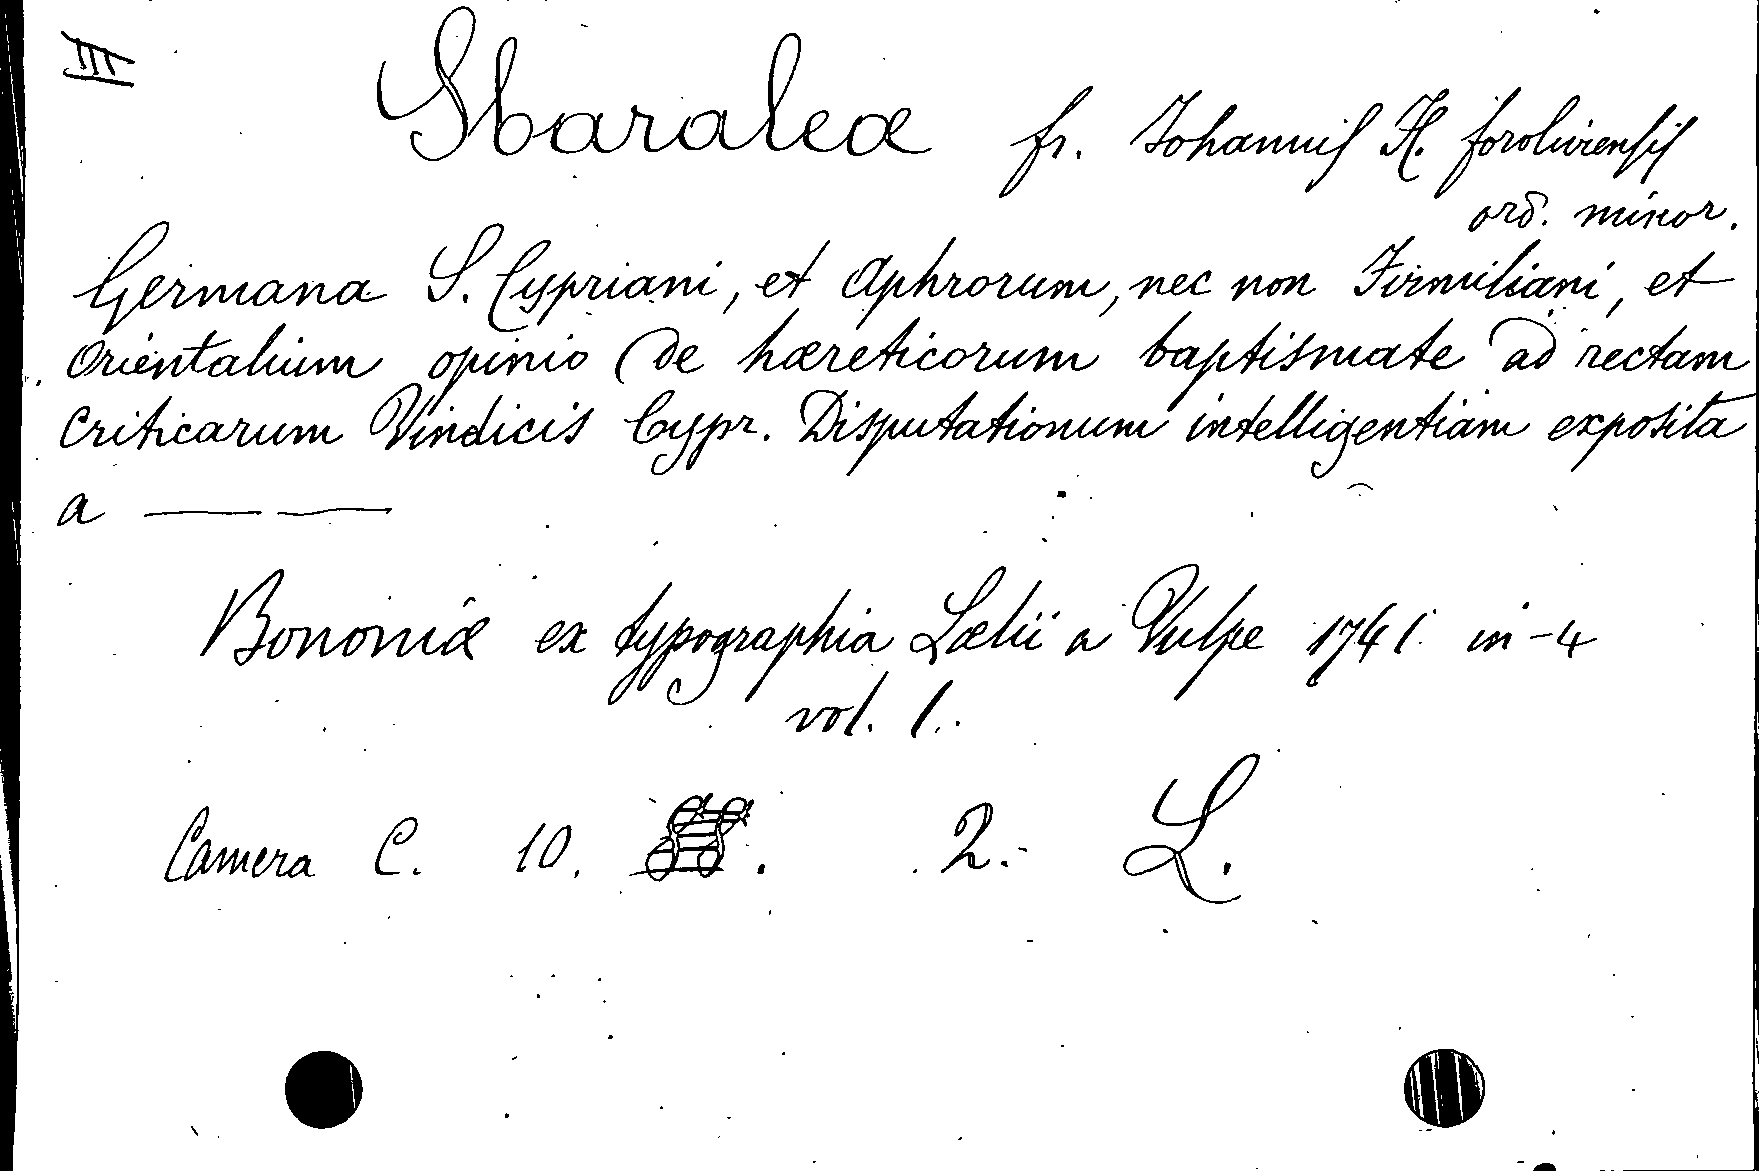 III
Sbaraleæ fr. Johannis H. foroliviensis
ord. minor.
Germana S. Cypriani, et Aphrorum, nec non Firmiliani, et
Orientalium opinio de hæreticorum baptismate ad rectam
criticarum Vindicis Cypr. Disputationum intelligentiam exposita
a — —
Bononiæ ex typographia Lælii a Vulpe 1741 in-4
vol. 1.
Camera C. 10. 2. L.